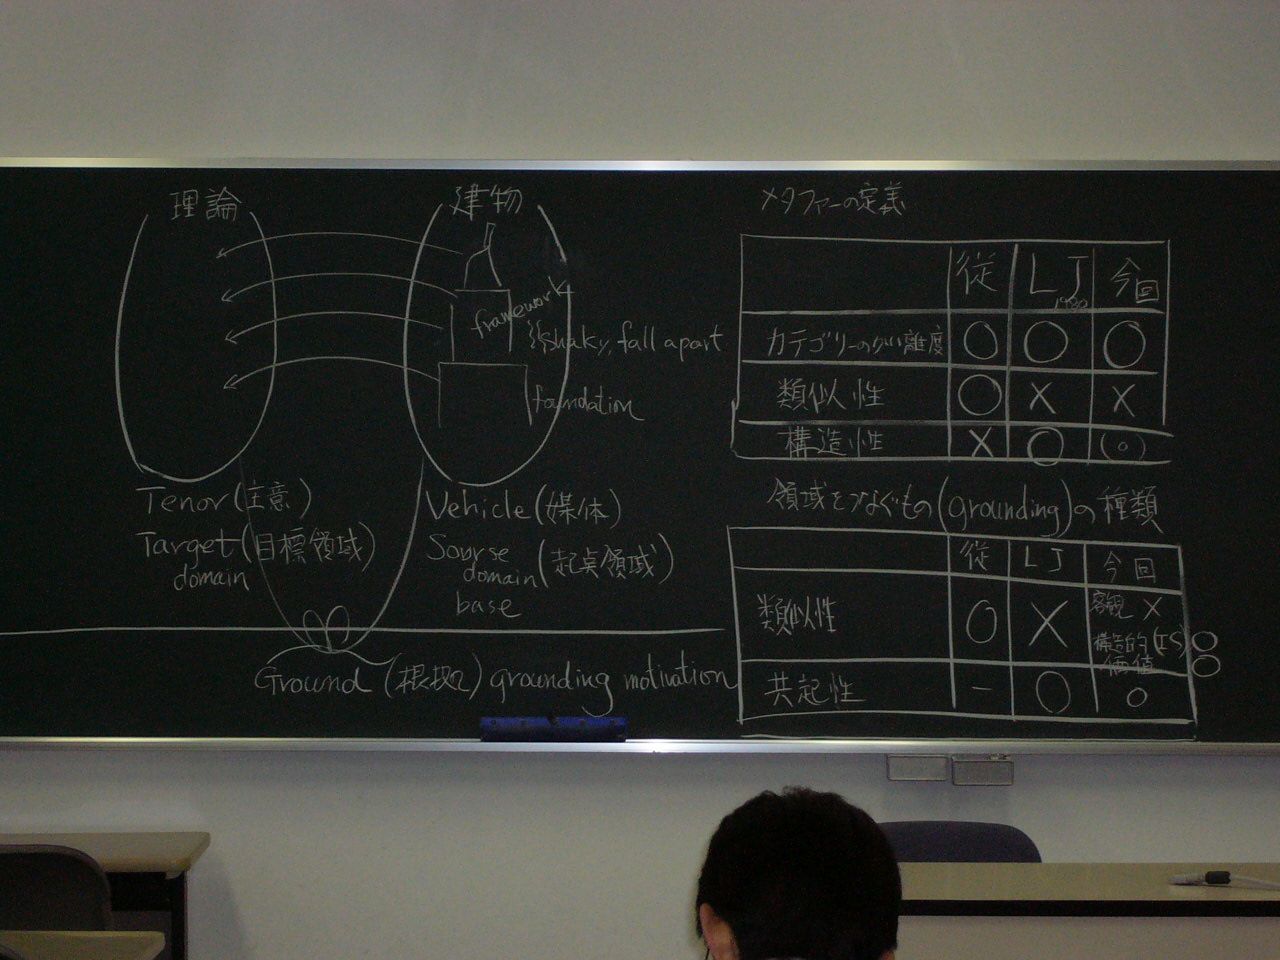 理論
建物
framework
shaky, fall apart
foundation
Tenor(主意)
Target(目標領域)
domain
Vehicle(媒体)
Sourse
domain(起点領域)
base
Ground (根拠) grounding motivation
メタファーの定義
従 LJ 1980 今回
カテゴリーのかい離度 ○ ○ ○
類似性 ○ × ×
構造性 × ○ (○)
領域をつなぐもの(grounding)の種類
従 LJ 今回
類似性 ○ × 客観 ×
構造的(IS) ○
価値 ○
共起性 − ○ ○